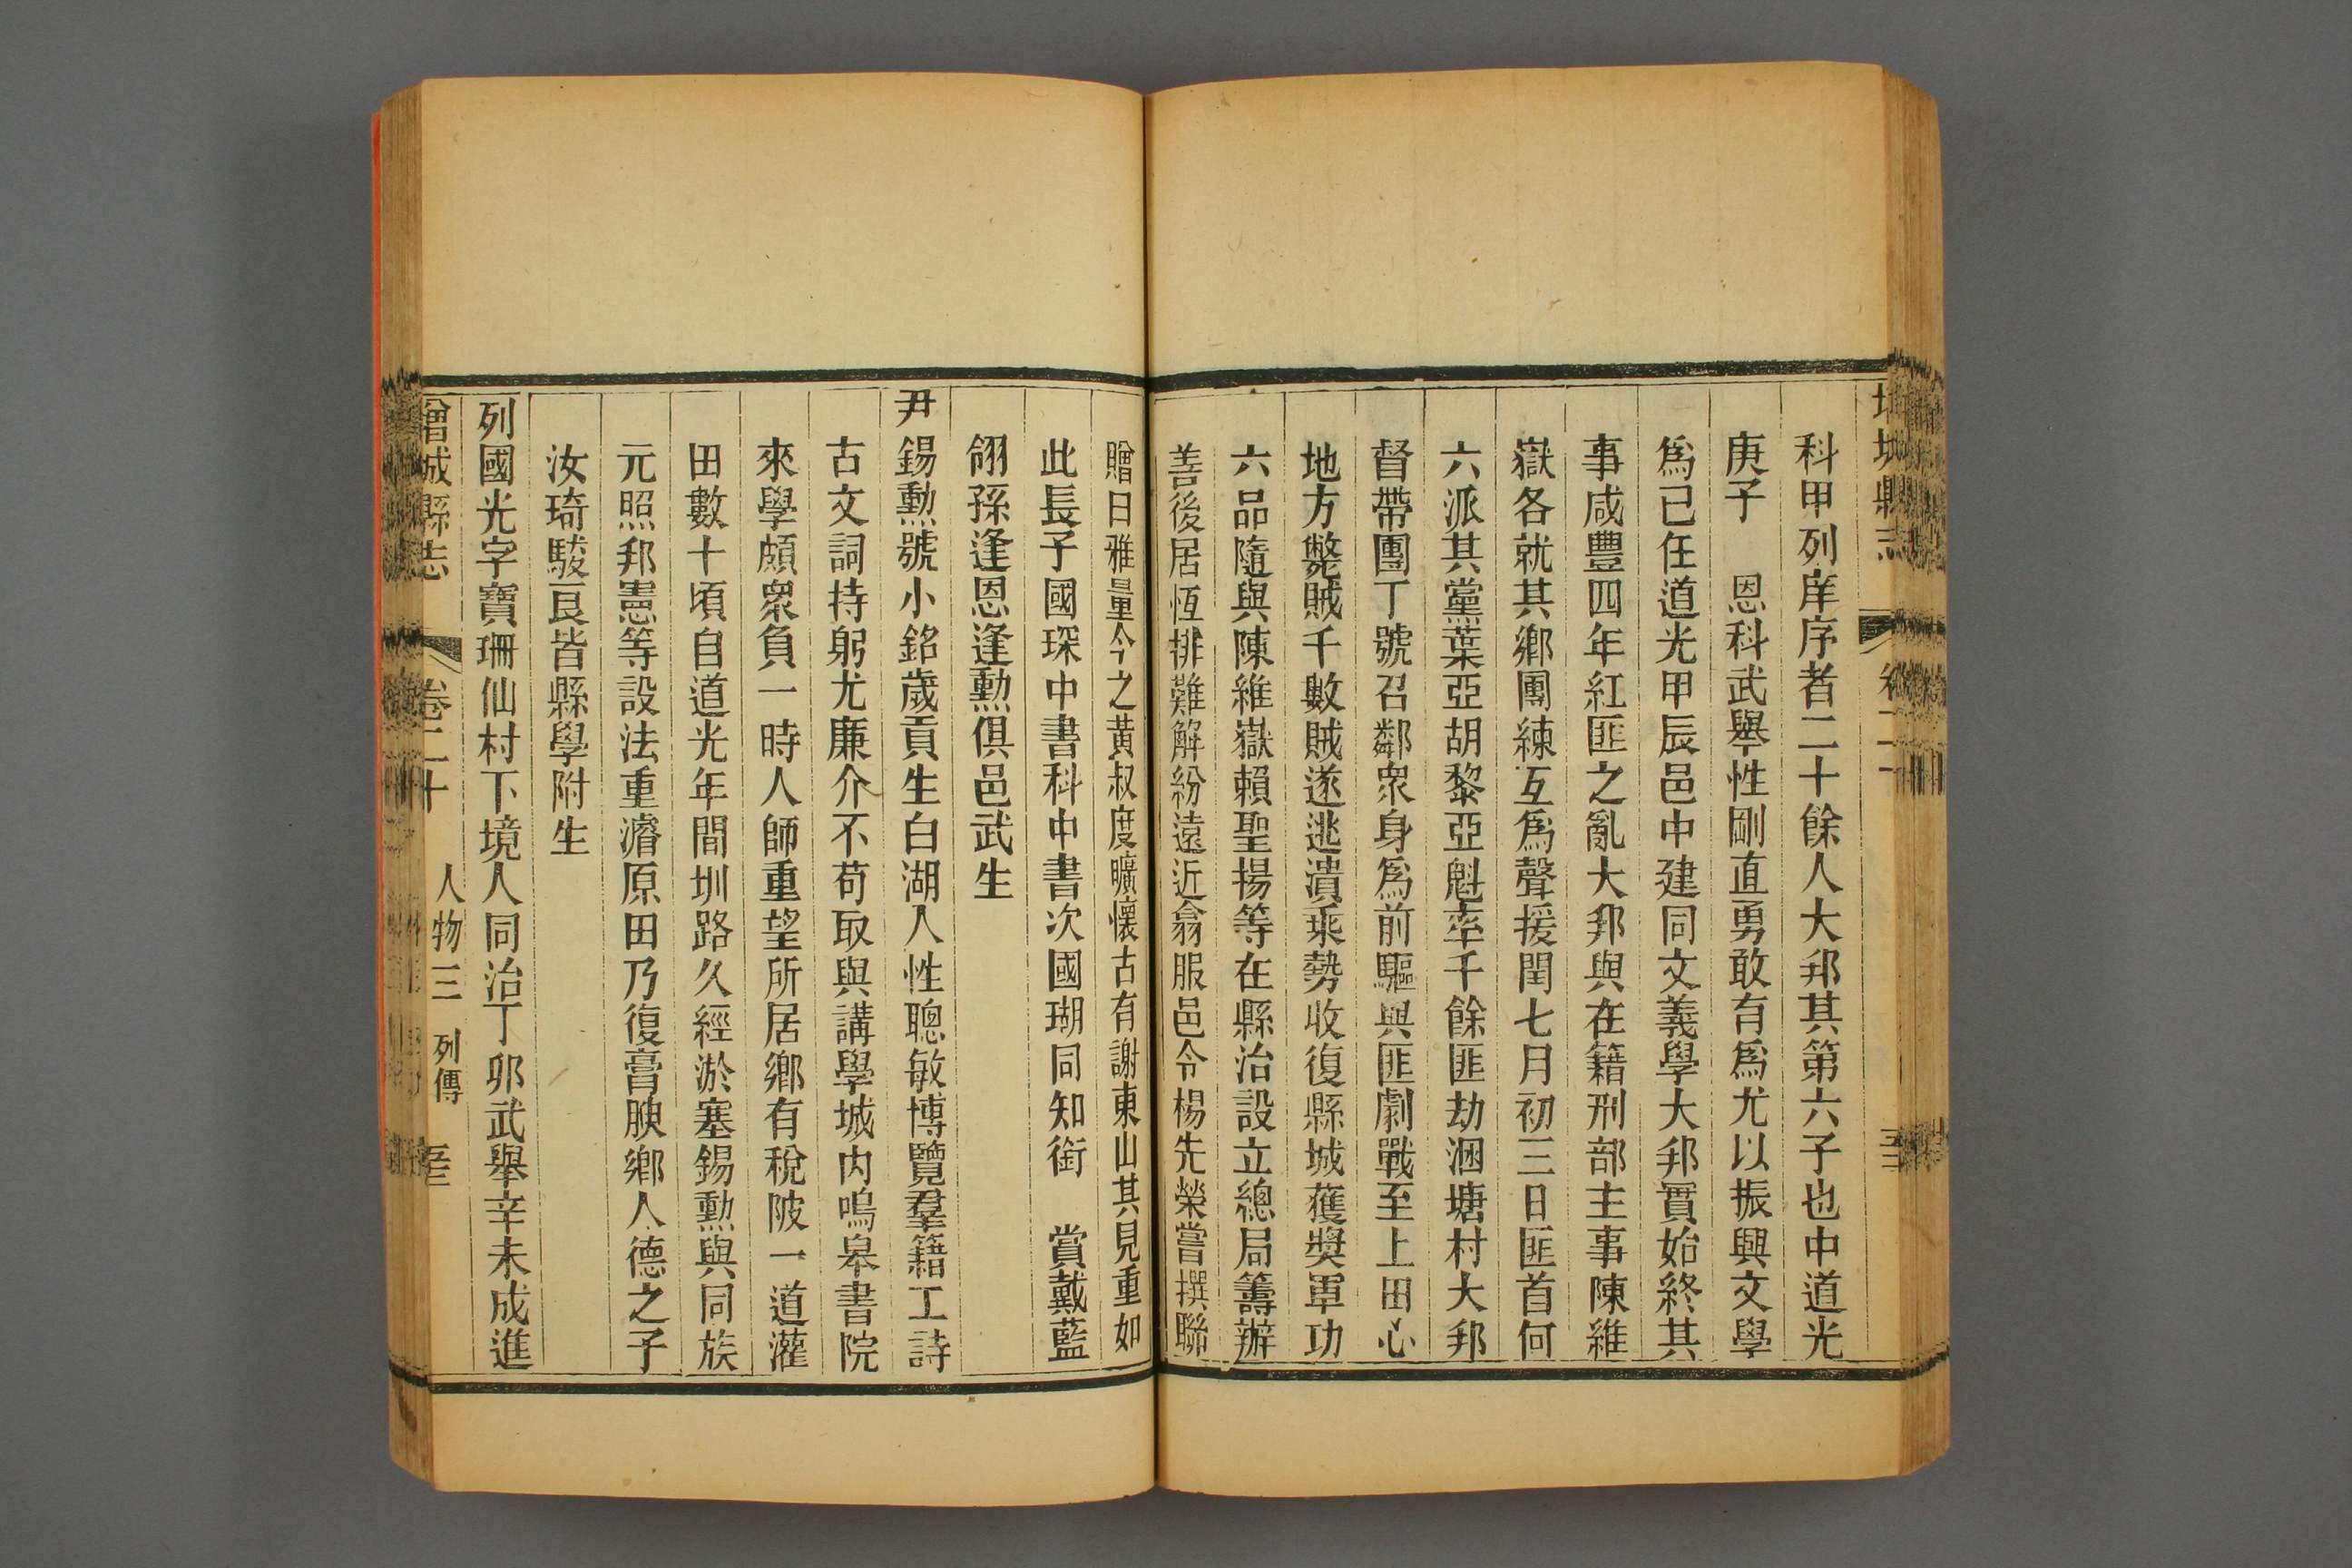 科甲列庠序者二十餘人大邦其第六子也中道光
庚子　恩科武舉性剛直勇敢有爲尤以振興文學
爲己任道光甲辰邑中建同文義學大邦實始終其
事咸豐四年紅匪之亂大邦與在籍刑部主事陳維
嶽各就其鄉團練互爲聲援閏七月初三日匪首何
六派其黨葉亞胡黎亞魁率千餘匪劫溷塘村大邦
督帶團丁號召鄰衆身爲前驅與匪劇戰至上田心
地方斃賊千數賊遂逃潰乘勢收復縣城獲獎軍功
六品隨與陳維嶽賴聖揚等在縣治設立總局籌辦
善後居恆排難解紛遠近翕服邑令楊先榮嘗撰聯
贈曰雅量今之黃叔度曠懷古有謝東山其見重如
此長子國琛中書科中書次國瑚同知銜　賞戴藍
翎孫逢恩逢勳俱邑武生
尹錫勳號小銘歲貢生白湖人性聰敏博覽羣籍工詩
古文詞持躬尤廉介不苟取與講學城内鳴皋書院
來學頗衆負一時人師重望所居鄉有稅陂一道灌
田數十頃自道光年間圳路久經淤塞錫勳與同族
元照邦憲等設法重濬原田乃復膏腴鄉人德之子
汝琦駿良皆縣學附生
列國光字寶珊仙村下境人同治丁卯武舉辛未成進
增城縣志　卷二十　人物三　列傳